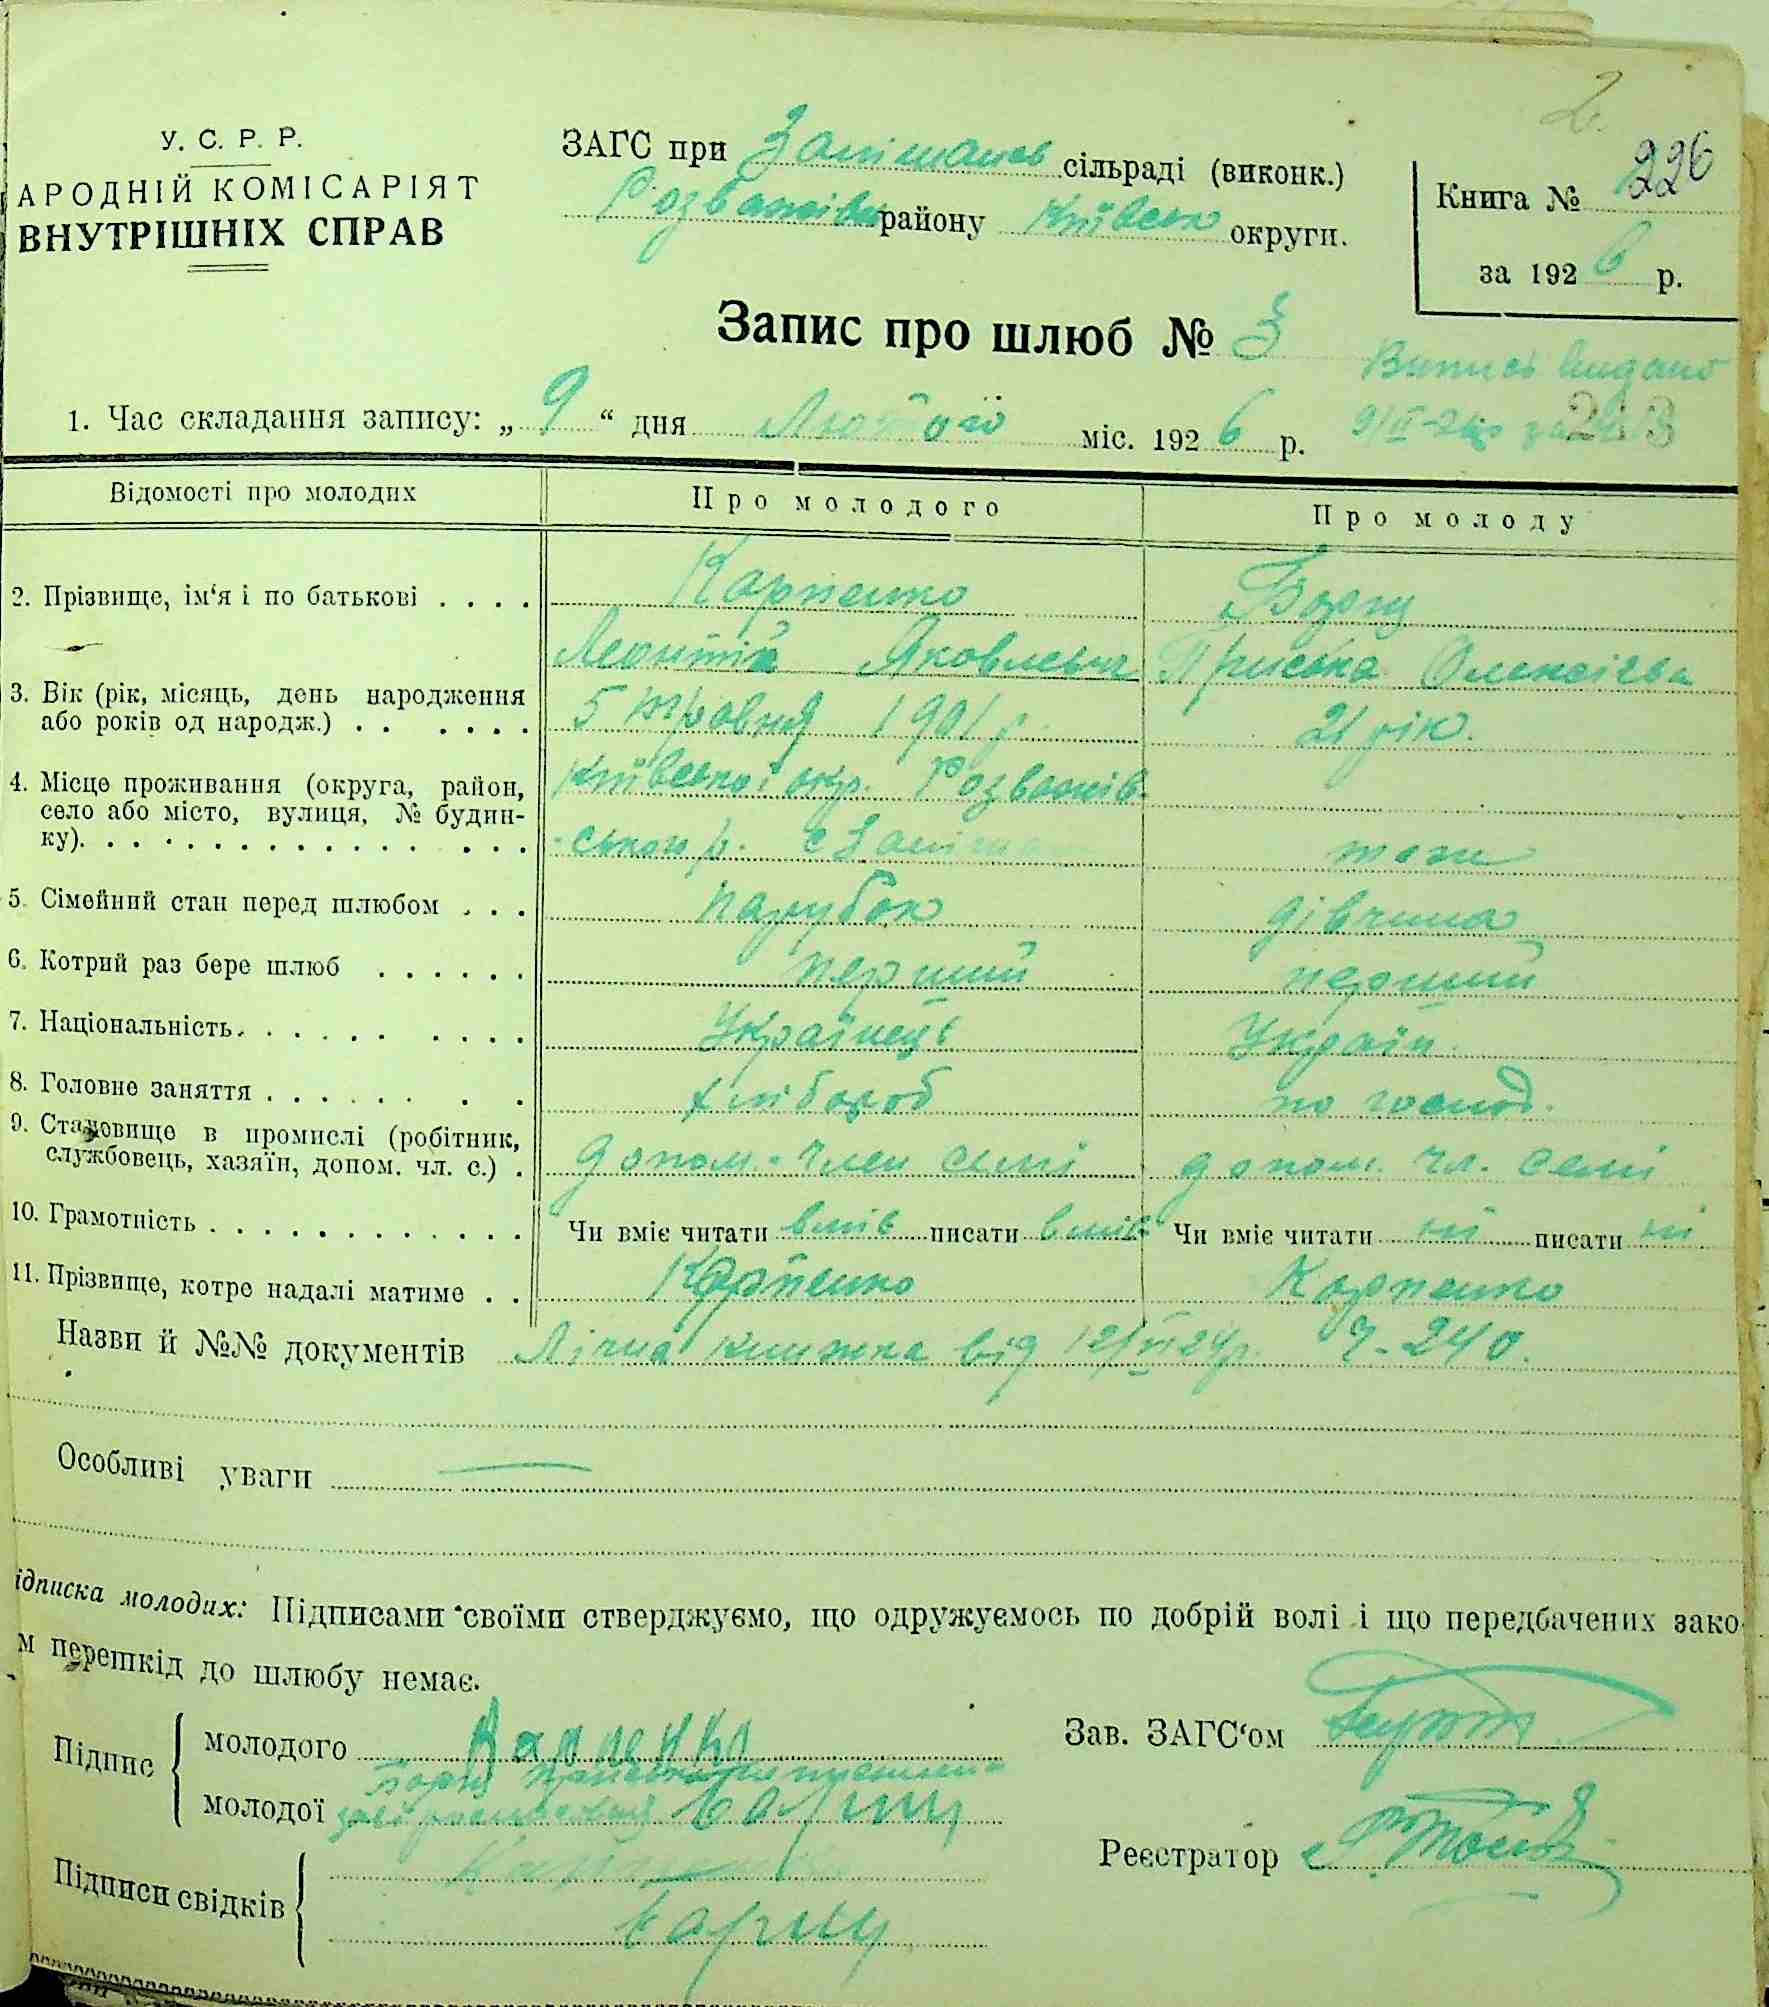 2.
У. С. Р. Р.
АРОДНІЙ КОМІСАРІЯТ
ВНУТРІШНІХ СПРАВ
ЗАГС при сільраді (виконк.)
району Київськ округи.
Книга № 226
за 1926 р.
Запис про шлюб № 3
Випись видано
1. Час складання запису: „ 9 “ дня Лютого міс. 1926 р.
Відомості про молодих Про молодого Про молоду
2. Прізвище, ім‘я і по батькові . . . . Карпенко
Леонтій Яковлевич Приська Олексієва
3. Вік (рік, місяць, день народження
або років од народж.) . . . . . . 5 травня 1901 р. 21 рік.
4. Місце проживання (округа, район, Київської окр. Розважів-
село або місто, вулиця, № будин-
ку). . . . . . . . . . . . . . . . ського р. тож
5. Сімейний стан перед шлюбом . . . парубок дівчина
6. Котрий раз бере шлюб . . . . . . перший перший
7. Національність. . . . . . . . . Українець Україн.
8. Головне заняття . . . . . . . . хлібороб по господ.
9. Становище в промислі (робітник,
службовець, хазяїн, допом. чл. с.) . допом. член семї допом. чл. семї
10. Грамотність . . . . . . . . . . . . Чи вміє читати вміє писати вміє Чи вміє читати ні писати ні
11. Прізвище, котре надалі матиме . . Карпенко Карпенко
Назви й №№ документів Лічна книжка від Ч. 240.
Особливі уваги —
ідписка молодих: Підписами своїми стверджуємо, що одружуємось по добрій волі і що передбачених зако-
м перешкід до шлюбу немає.
Підпис
молодого Карпенко
молодої
Зав. ЗАГС‘ом
Підписи свідків
Реєстратор